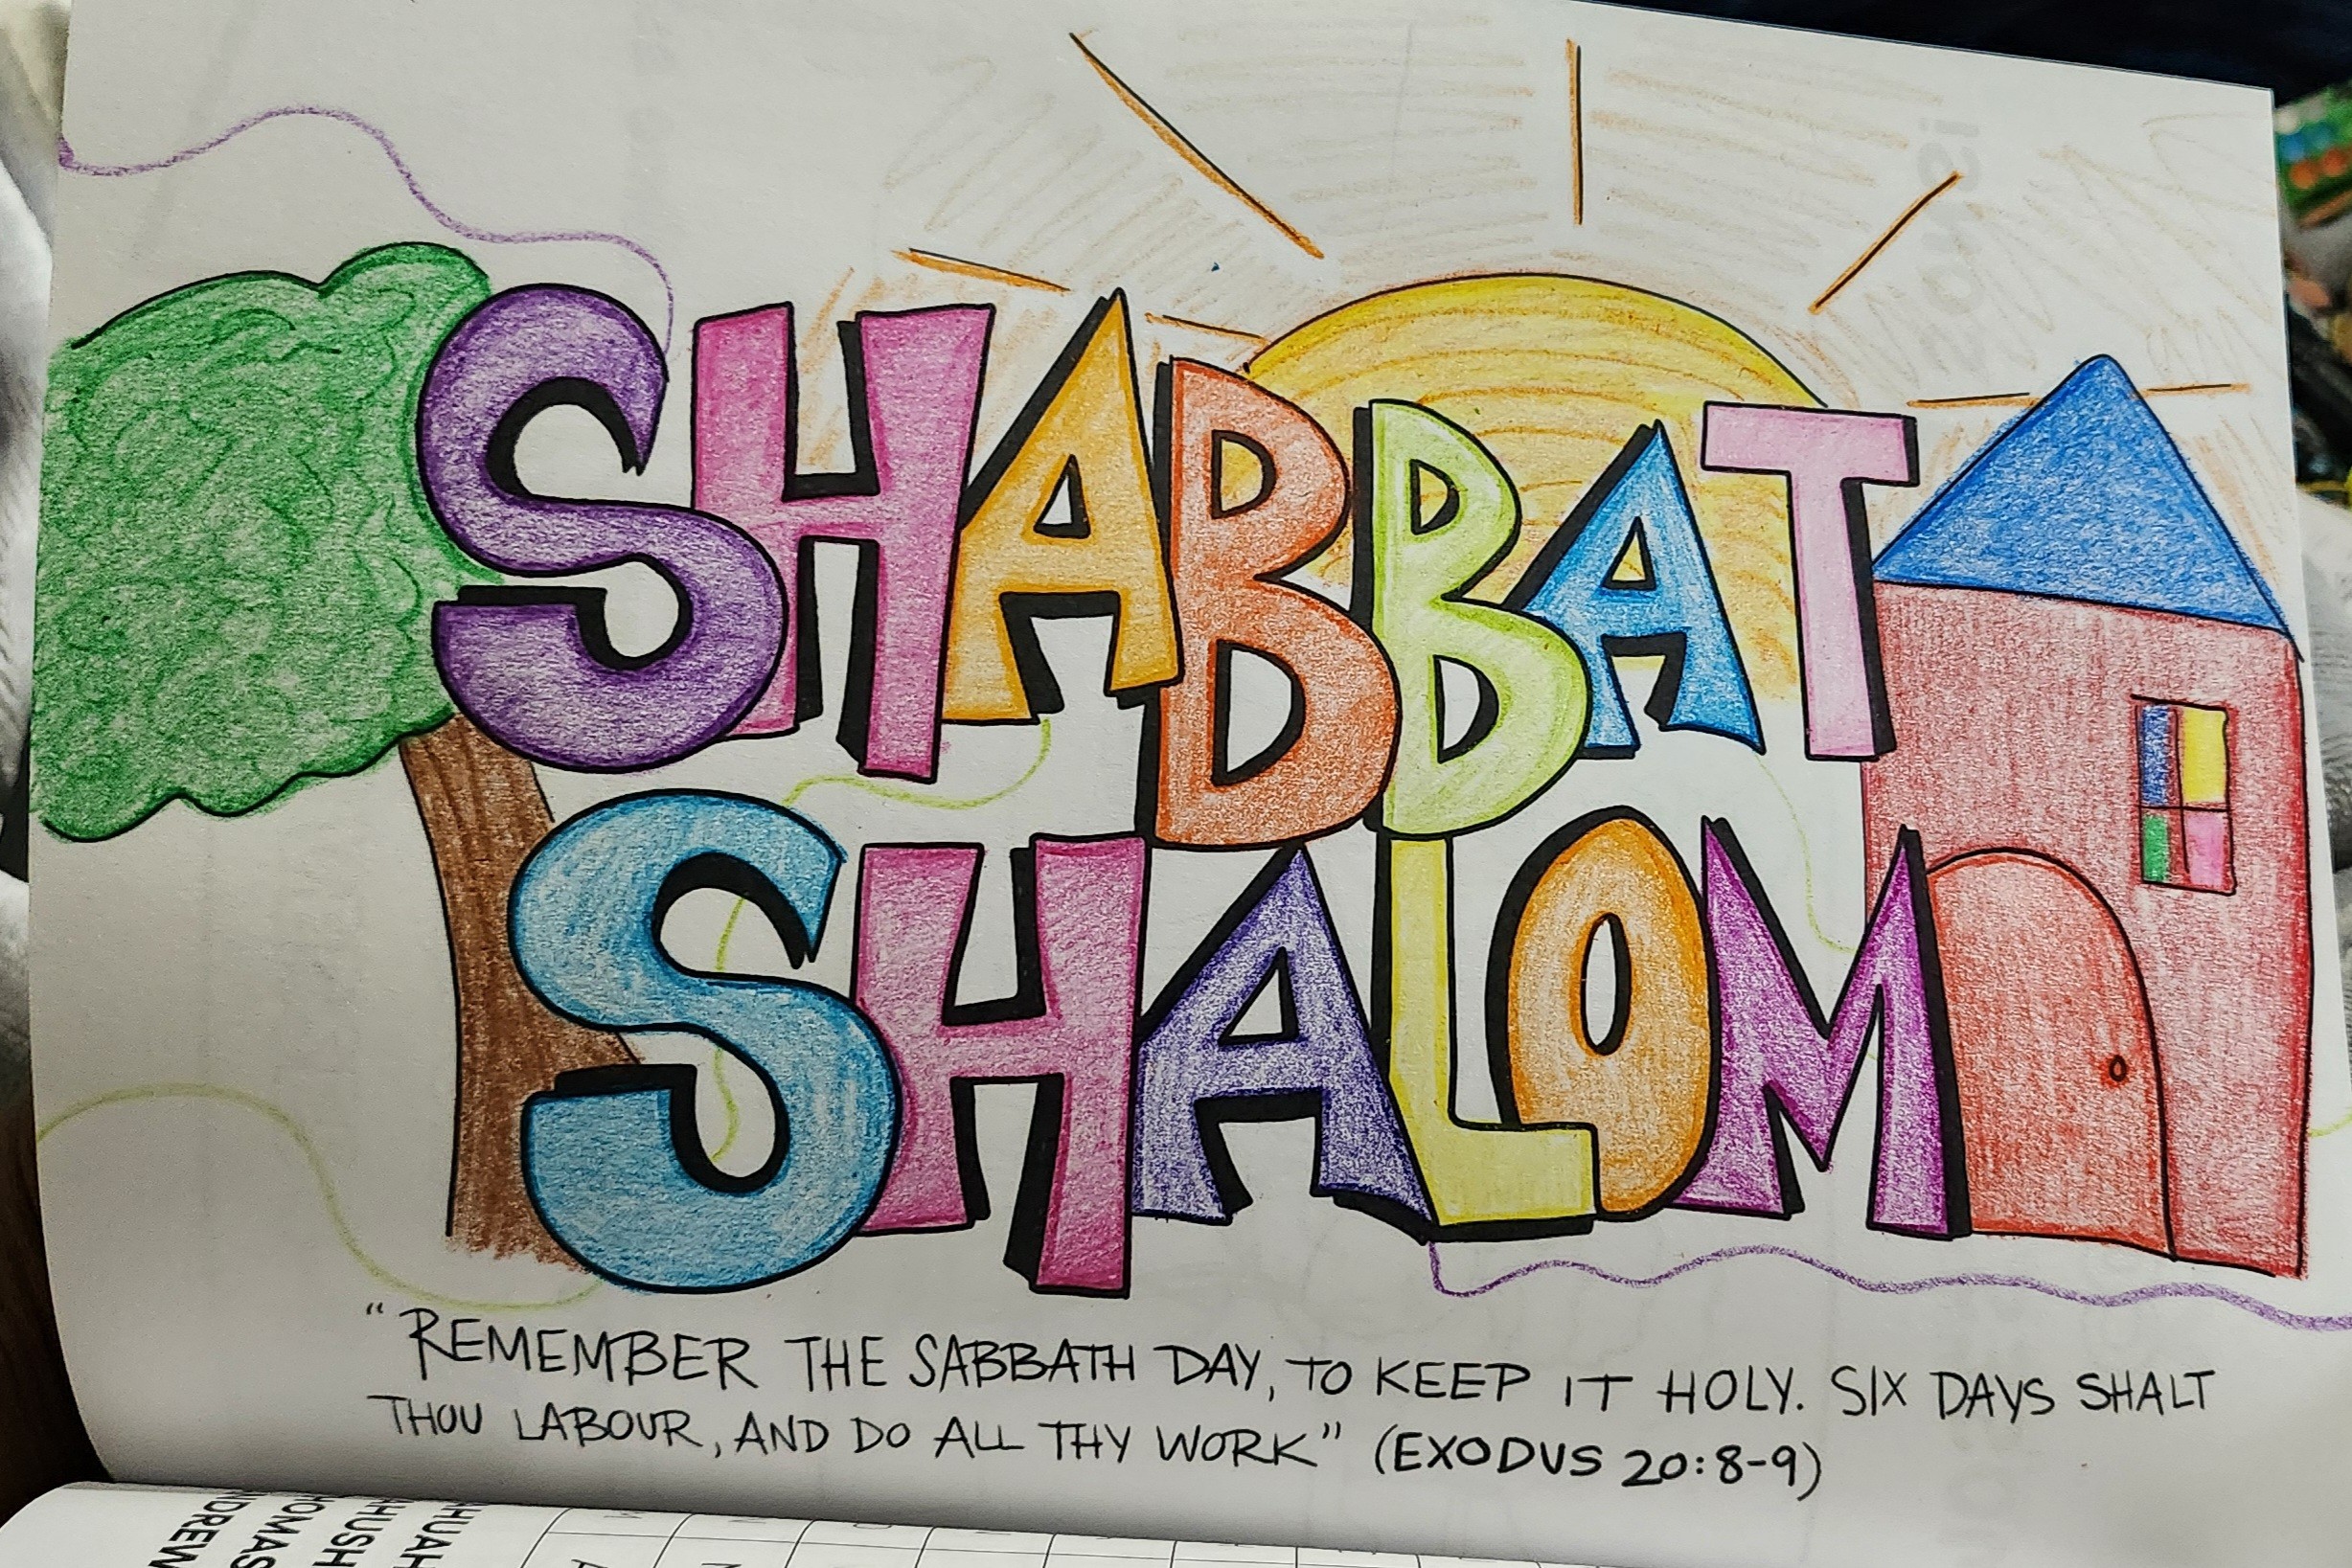 SHABBAT
SHALOM
"REMEMBER THE SABBATH DAY, TO KEEP IT HOLY. SIX DAYS SHALT
THOU LABOUR, AND DO ALL THY WORK" (EXODUS 20:8-9)